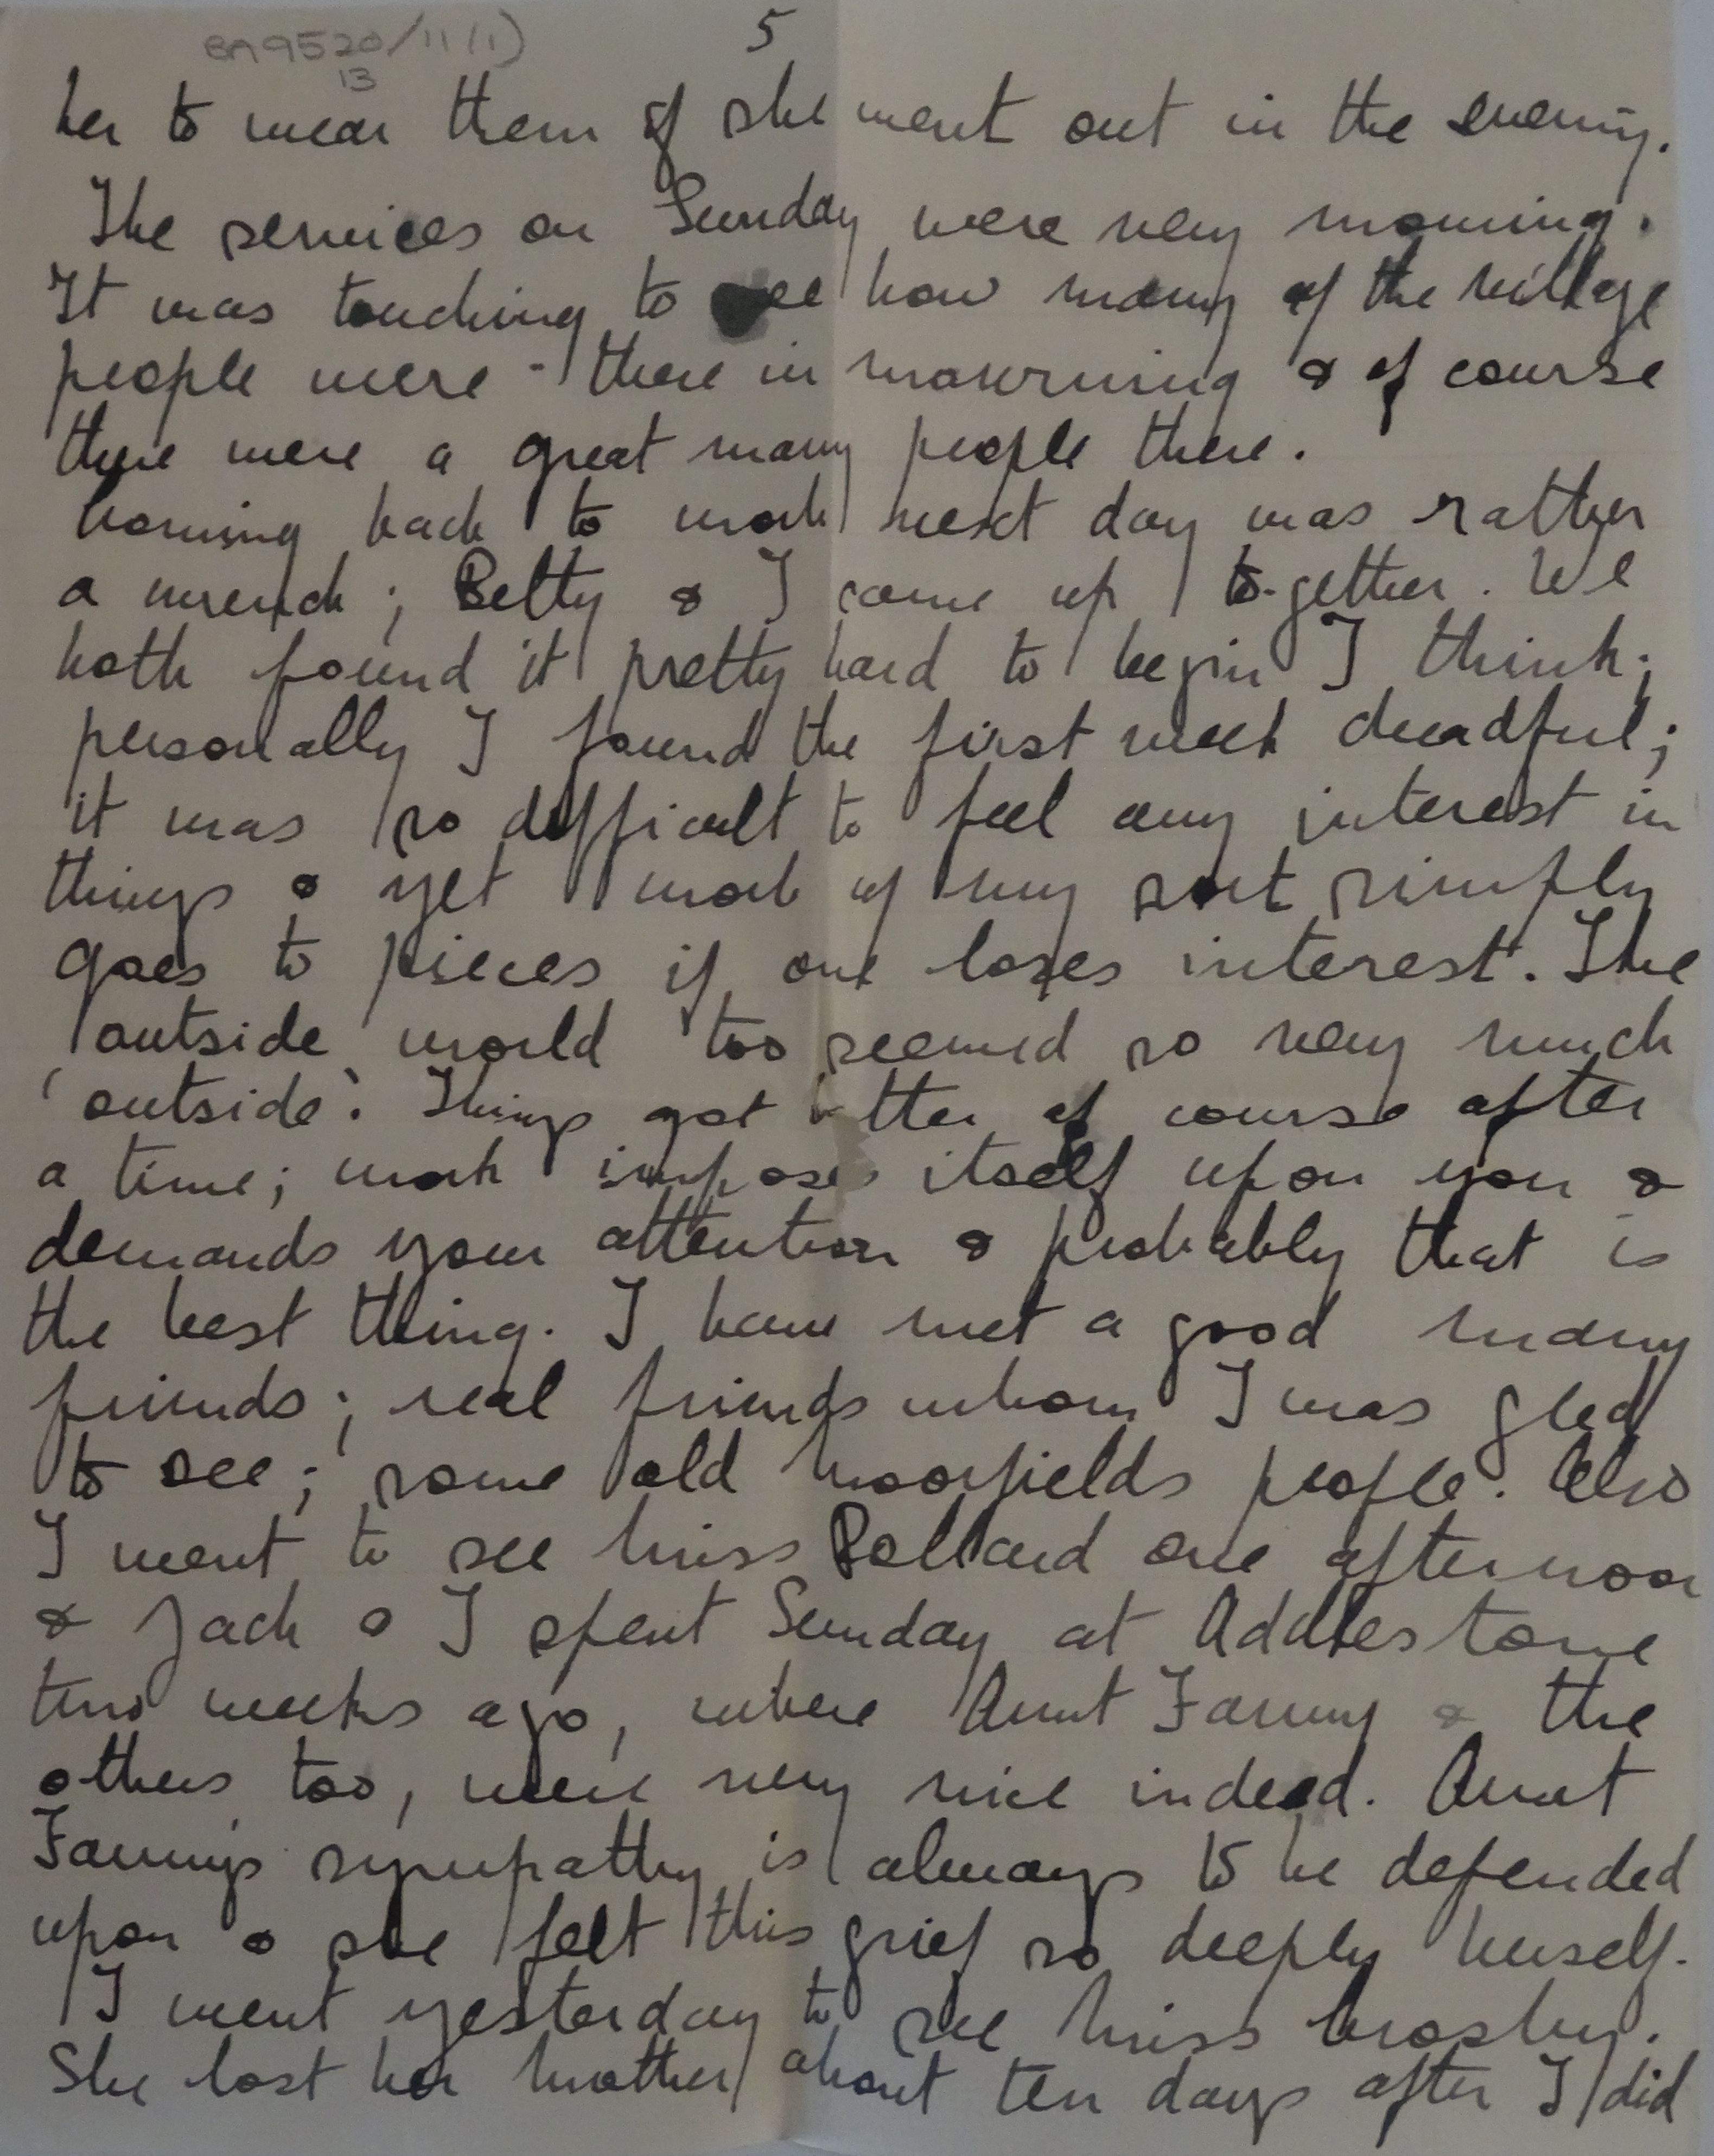 BA9520/11(1)
13
5
her to wear them if she went out in the evening.
The services on Sunday were very moving.
It was touching to see how many of the village
people were - there in mourning & of course
there were a great many people there.
Coming back to work next day was rather
a wrench; Betty & I came up to-gether. We
both found it pretty hard to begin I think;
personally I found the first week dreadful;
it was so difficult to feel any interest in
things & yet work of my sort simply
goes to pieces if one loses interest. The
outside world too seemed so very much
'outside'. Things got better of course after
a time; work imposes itself upon you &
demands your attention & probably that is
the best thing. I have met a good many
friends; real friends whom I was glad
to see; some old Moorfields people. Also
I went to see Miss Pollard one afternoon
& Jack & I spent Sunday at Addlestone
two weeks ago, where Aunt Fanny & the
others too, were very nice indeed. Aunt
Fanny's sympathy is always to be depended
upon & she felt this grief so deeply herself.
I went yesterday to see Miss Crosby.
She lost her mother about ten days after I did